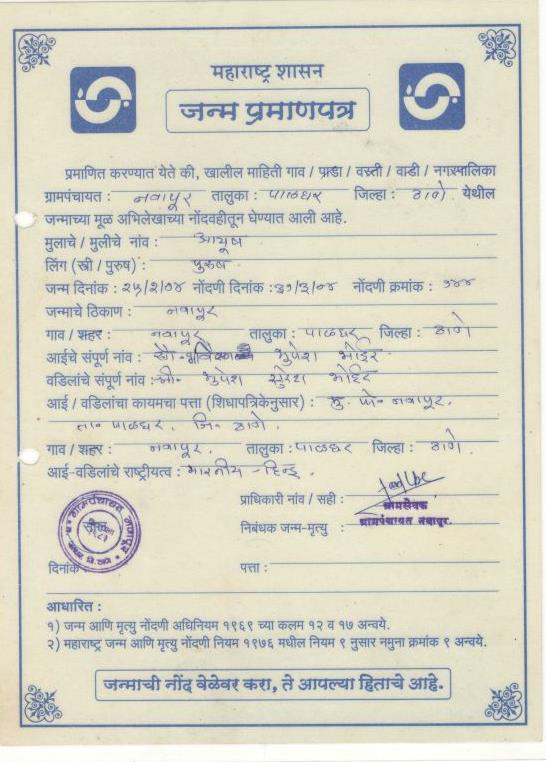 महाराष्ट्र शासन
जन्म प्रमाणपत्र
प्रमाणित करण्यात येते की, खालील माहिती गाव / पाडा / वस्ती / वाडी / नगरपालिका
ग्रामपंचायत : नवापूर तालुका : पालघर जिल्हा : ठाणे येथील
जन्माच्या मूळ अभिलेखाच्या नोंदवहीतून घेण्यात आली आहे.
मुलाचे / मुलीचे नांव : आयुष
लिंग (स्त्री / पुरुष) : पुरुष
जन्म दिनांक : २५/२/०४ नोंदणी दिनांक : ३१/३/०४ नोंदणी क्रमांक : १४४
जन्माचे ठिकाण : नवापूर
गाव / शहर : नवापूर तालुका : पालघर जिल्हा : ठाणे
आईचे संपूर्ण नांव : सौ. भुपेश भोईर
वडिलांचे संपूर्ण नांव : श्री. भुपेश सुरेश भोईर
आई / वडिलांचा कायमचा पत्ता (शिधापत्रिकेनुसार) : मु. पो. नवापूर,
ता. पालघर, जि. ठाणे.
गाव / शहर : नवापूर. तालुका : पालघर जिल्हा : ठाणे.
आई-वडिलांचे राष्ट्रीयत्व : भारतीय - हिन्दू.
प्राधिकारी नांव / सही :
ग्रामसेवक
निबंधक जन्म-मृत्यु : ग्रामपंचायत नवापुर.
दिनांक पत्ता :
आधारित :
१) जन्म आणि मृत्यु नोंदणी अधिनियम १९६९ च्या कलम १२ व १७ अन्वये.
२) महाराष्ट्र जन्म आणि मृत्यु नोंदणी नियम १९७६ मधील नियम ९ नुसार नमुना क्रमांक ९ अन्वये.
जन्माची नोंद वेळेवर करा, ते आपल्या हिताचे आहे.